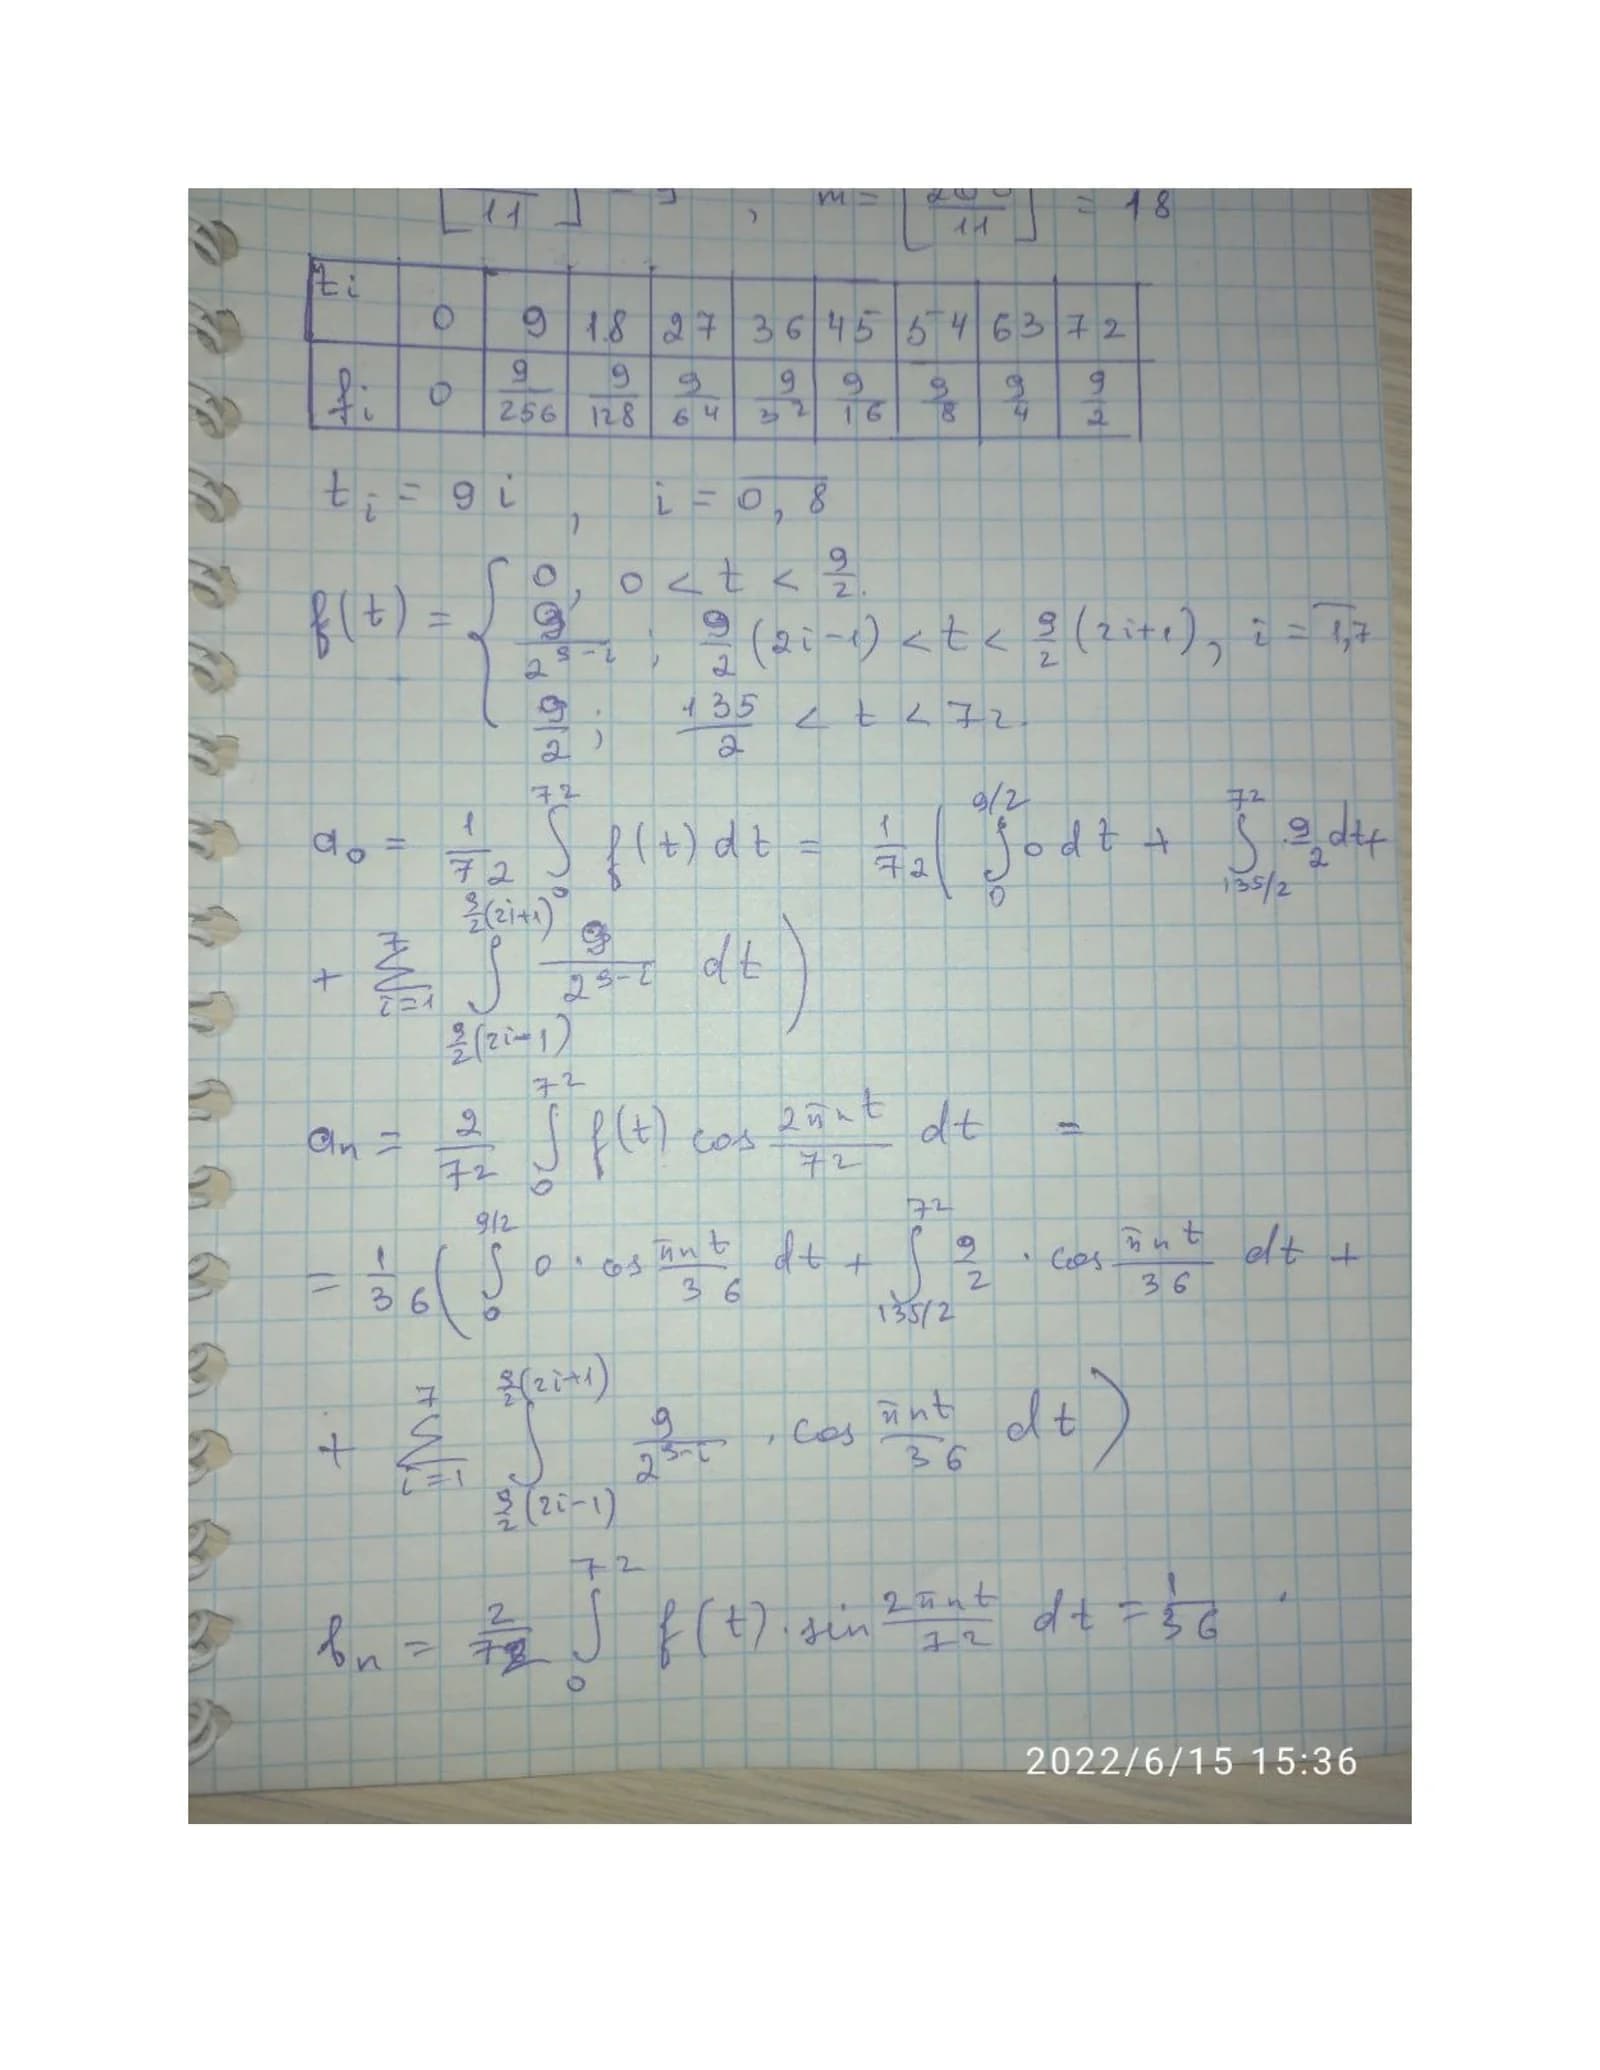 [ /11 ] = 9 , m = [200/11] = 18
ti 0 9 18 27 36 45 54 63 72
fi 0 9/256 9/128 9/64 9/32 9/16 9/8 9/4 9/2
ti = 9i , i = 0,8
f(t) = { 0, 0 < t < 9/2.
9/2^(9-i) ; 9/2 (2i-1) < t < 9/2 (2i+1), i = 1,7
9/2 ; 135/2 < t < 72.
a0 = 1/72 ∫_0^72 f(t) dt = 1/72 ( ∫_0^(9/2) 0 dt + ∫_(135/2)^72 9/2 dt +
+ Σ_(i=1)^7 ∫_(9/2(2i-1))^(9/2(2i+1)) 9/2^(9-i) dt )
an = 2/72 ∫_0^72 f(t) cos 2πnt/72 dt =
= 1/36 ( ∫_0^(9/2) 0 · cos πnt/36 dt + ∫_(135/2)^72 9/2 · cos πnt/36 dt +
+ Σ_(i=1)^7 ∫_(9/2(2i-1))^(9/2(2i+1)) 9/2^(9-i) · cos πnt/36 dt )
bn = 2/72 ∫_0^72 f(t) · sin 2πnt/72 dt = 1/36 ·
2022/6/15 15:36